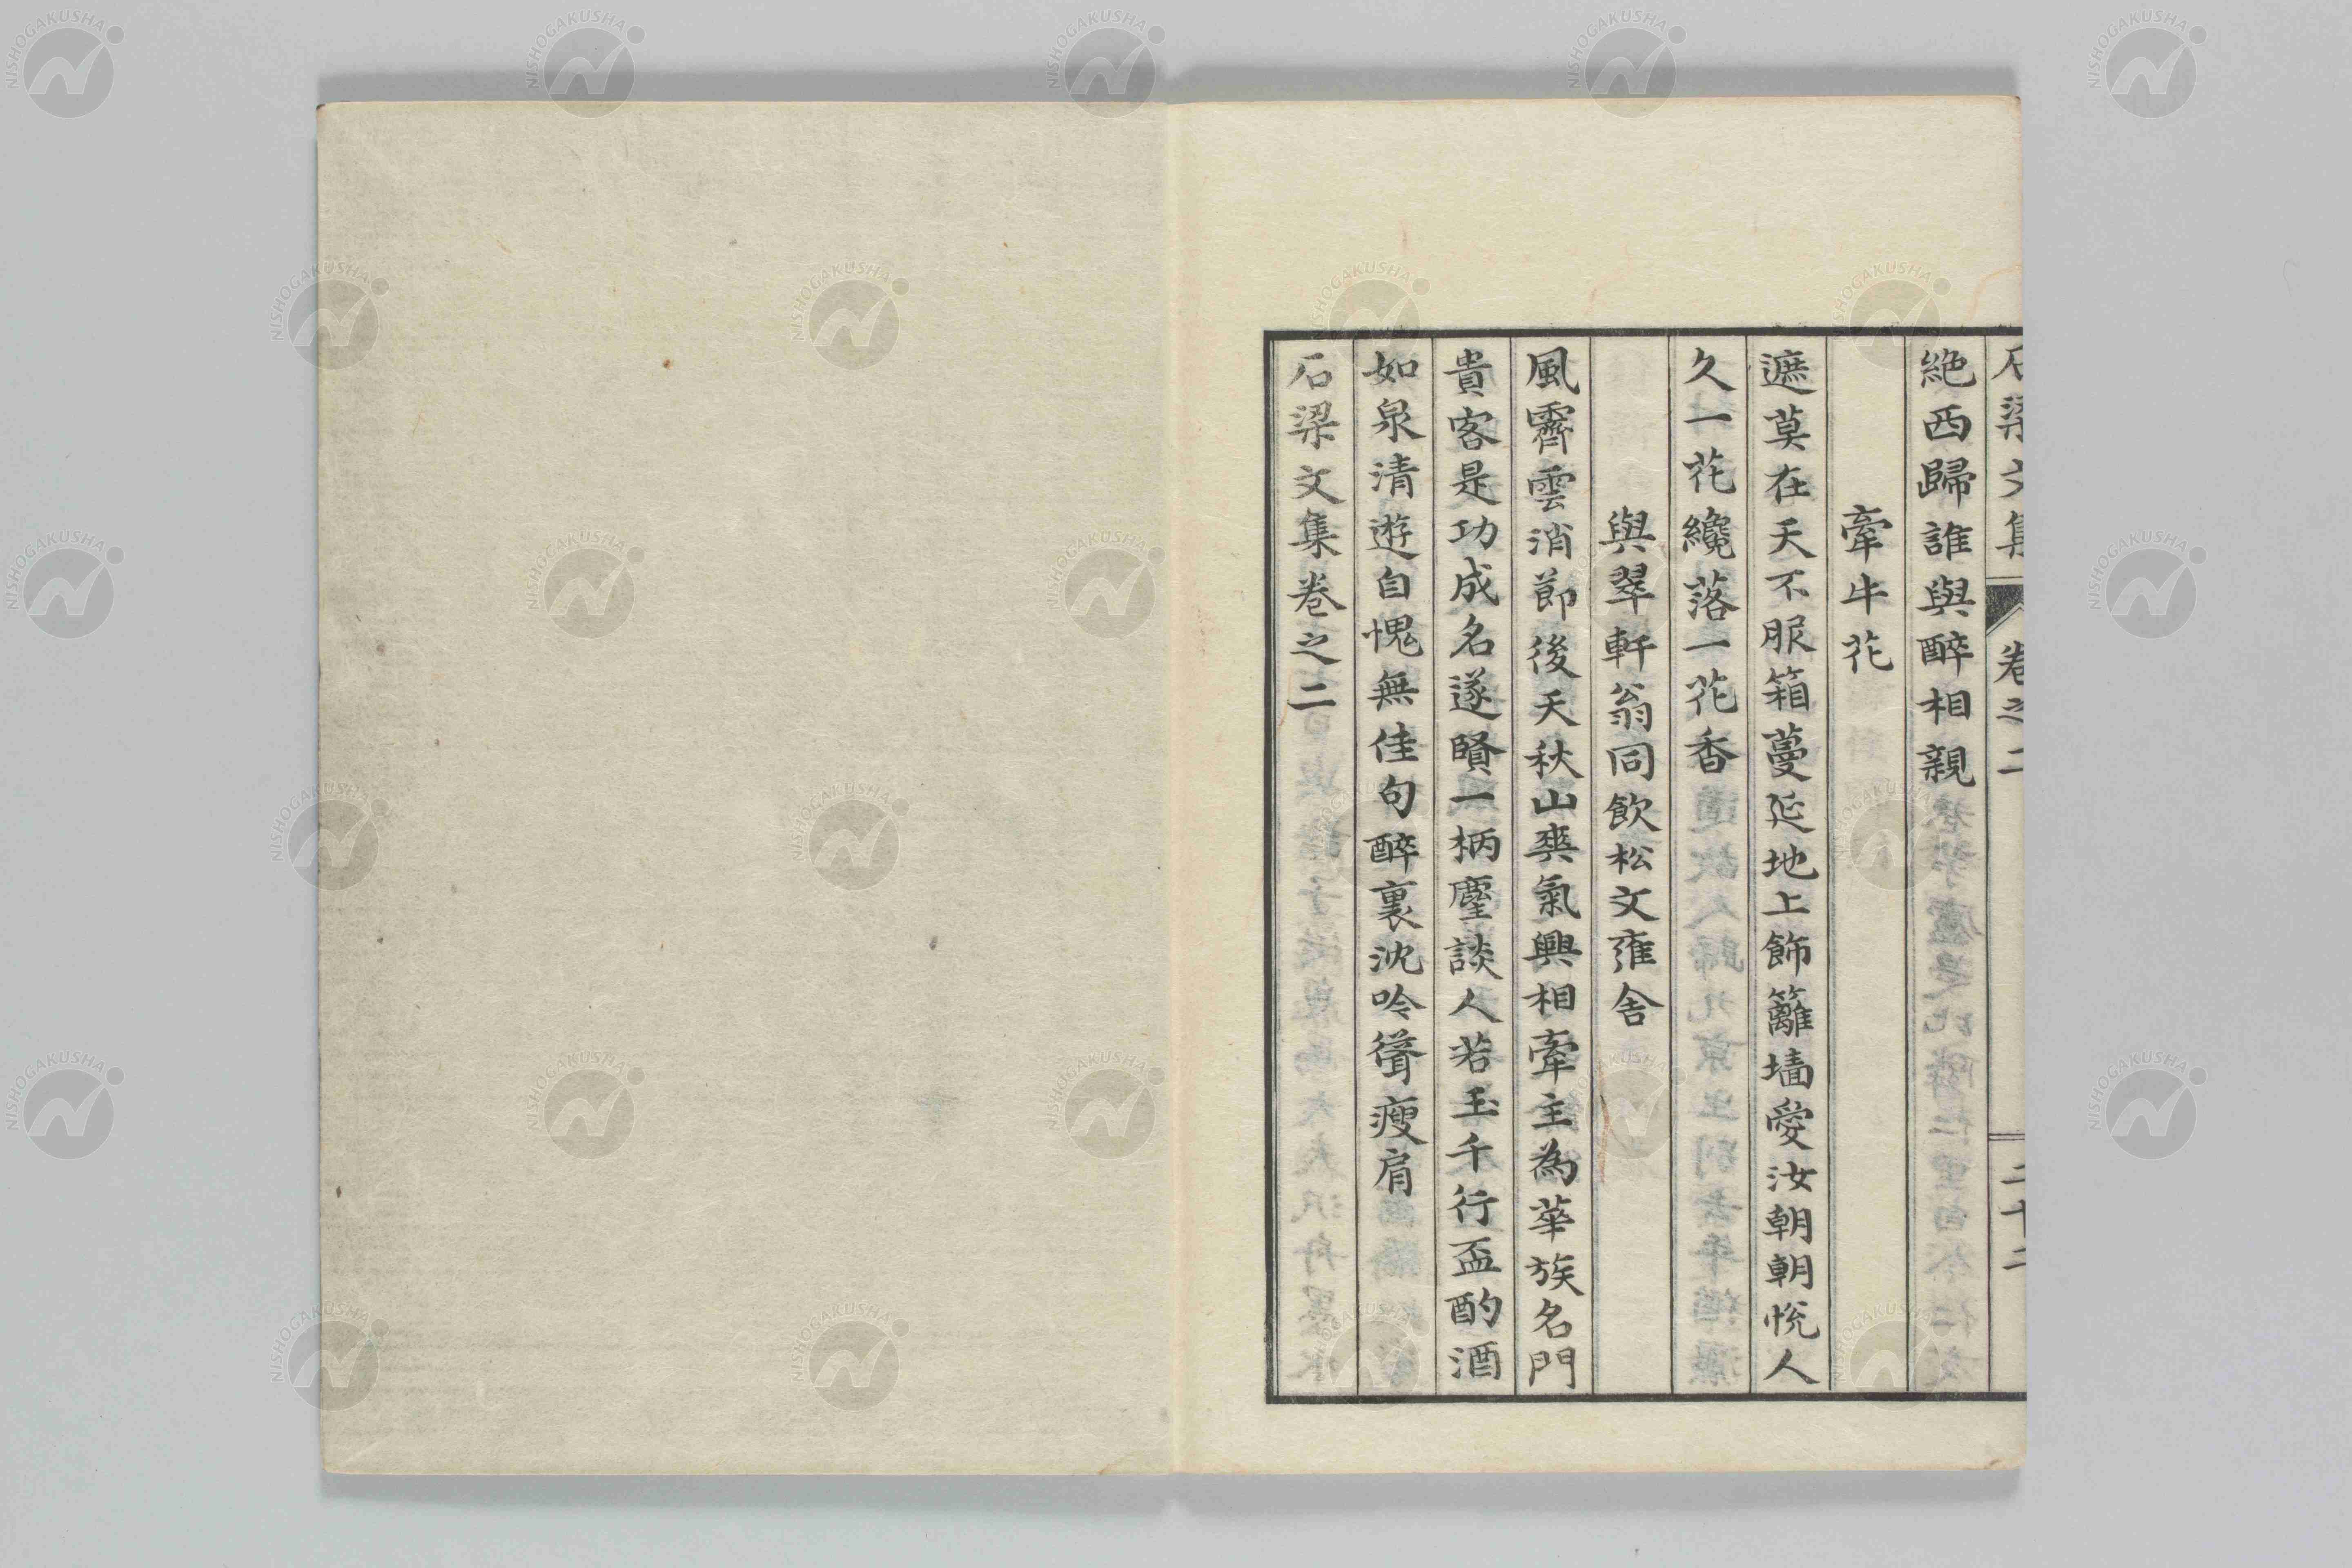 石梁文集 卷之二 二十二
絶西歸誰與醉相親
牽牛花
遮莫在天不服箱蔓延地上飾籬墻愛汝朝朝悅人
久一花纔落一花香
與翠軒翁同飲松文雍舍
風霽雲消節後天秋山爽氣興相牽主為華族名門
貴客是功成名遂賢一柄麈談人若玉千行盃酌酒
如泉清遊自愧無佳句醉裏沈吟聳瘦肩
石梁文集卷之二
NISHOGAKUSHA